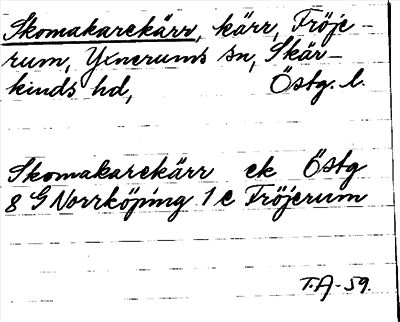 Skomakarekärr, kärr, Fröje-
rum, Yxnerums sn, Skär-
kinds hd, Östg. l.
Skomakarekärr ek Östg
8 G Norrköping 1 e Fröjerum
T.A-59.